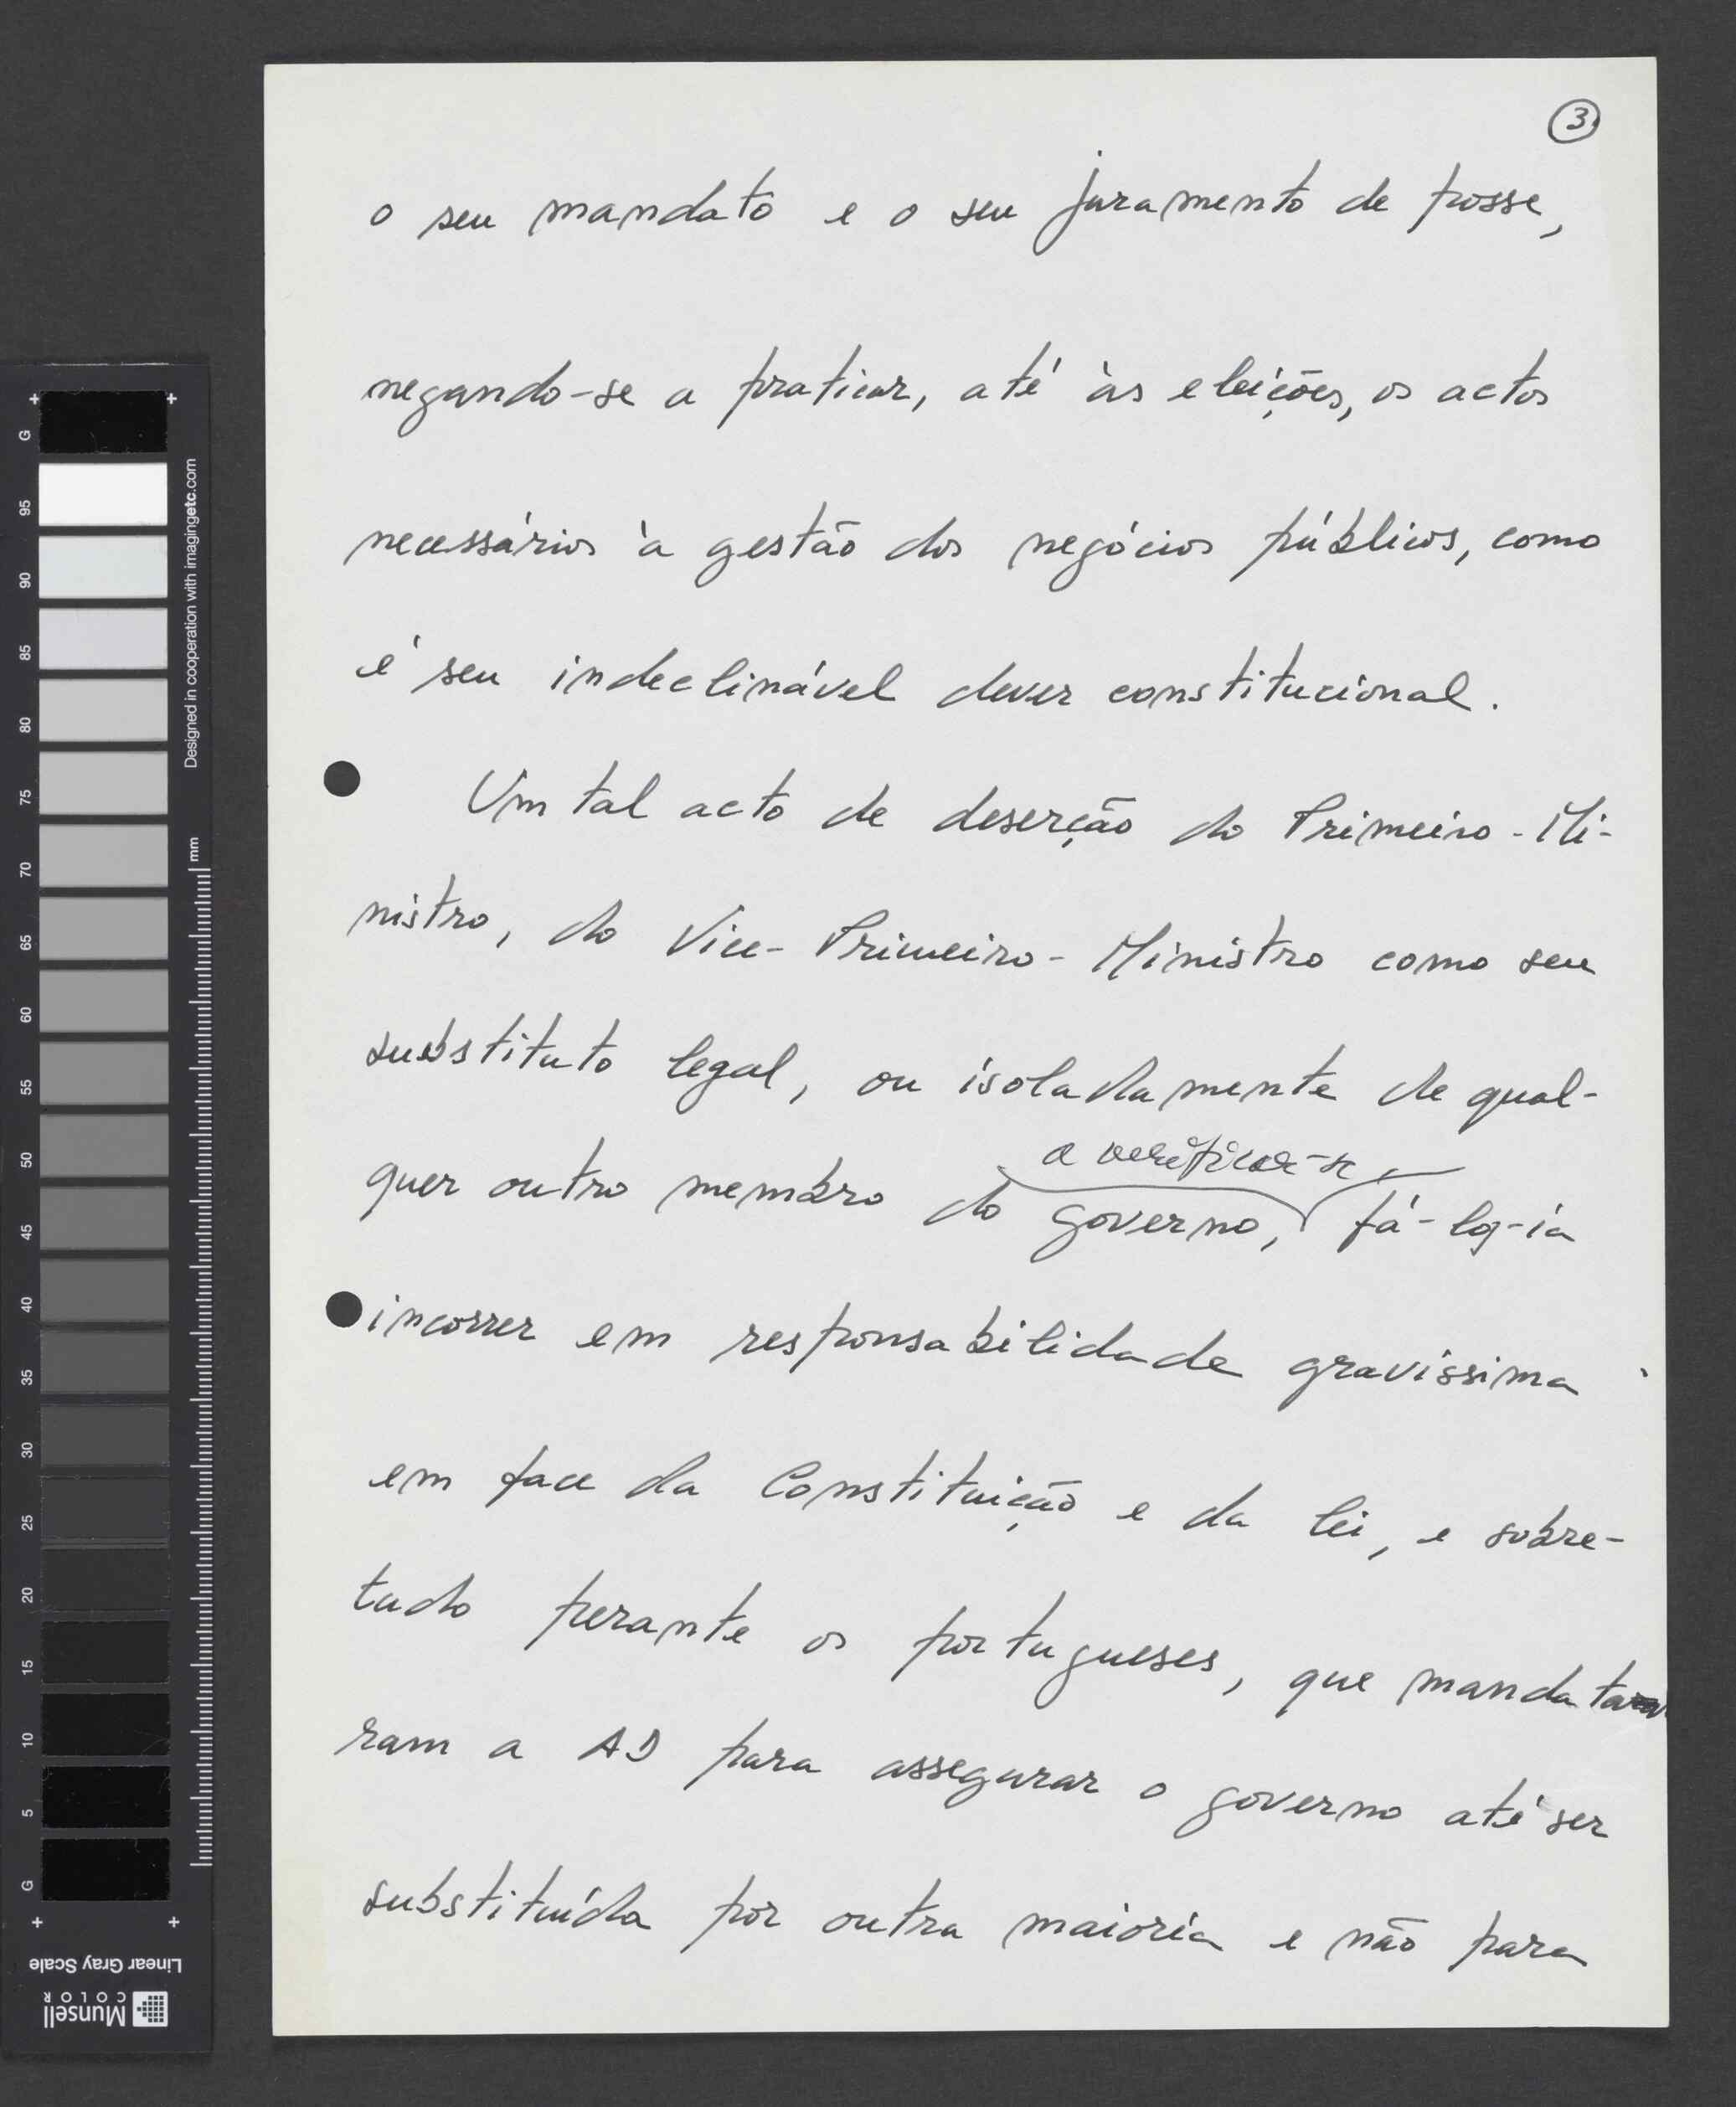 3
o seu mandato e o seu juramento de posse,
negando-se a praticar, até às eleições, os actos
necessários à gestão dos negócios públicos, como
é seu indeclinável dever constitucional.
Um tal acto de deserção do Primeiro-Mi-
nistro, do Vice-Primeiro-Ministro como seu
substituto legal, ou isoladamente de qual-
a verificar-se
quer outro membro do governo, fá-lo-ia
incorrer em responsabilidade gravíssima
em face da Constituição e da lei, e sobre-
tudo perante os portugueses, que mandata
ram a AD para assegurar o governo até ser
substituída por outra maioria e não para
G 95 90 85 80 75 70 65 60 55 50 45 40 35 30 25 20 15 10 5 G
Designed in cooperation with imagingetc.com
mm
Linear Gray Scale
Munsell
COLOR